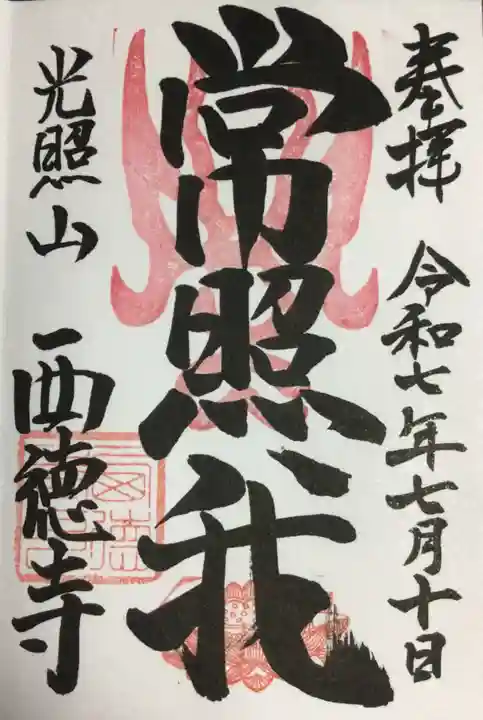 奉拝 令和七年七月十日
常照我
光照山 西徳寺